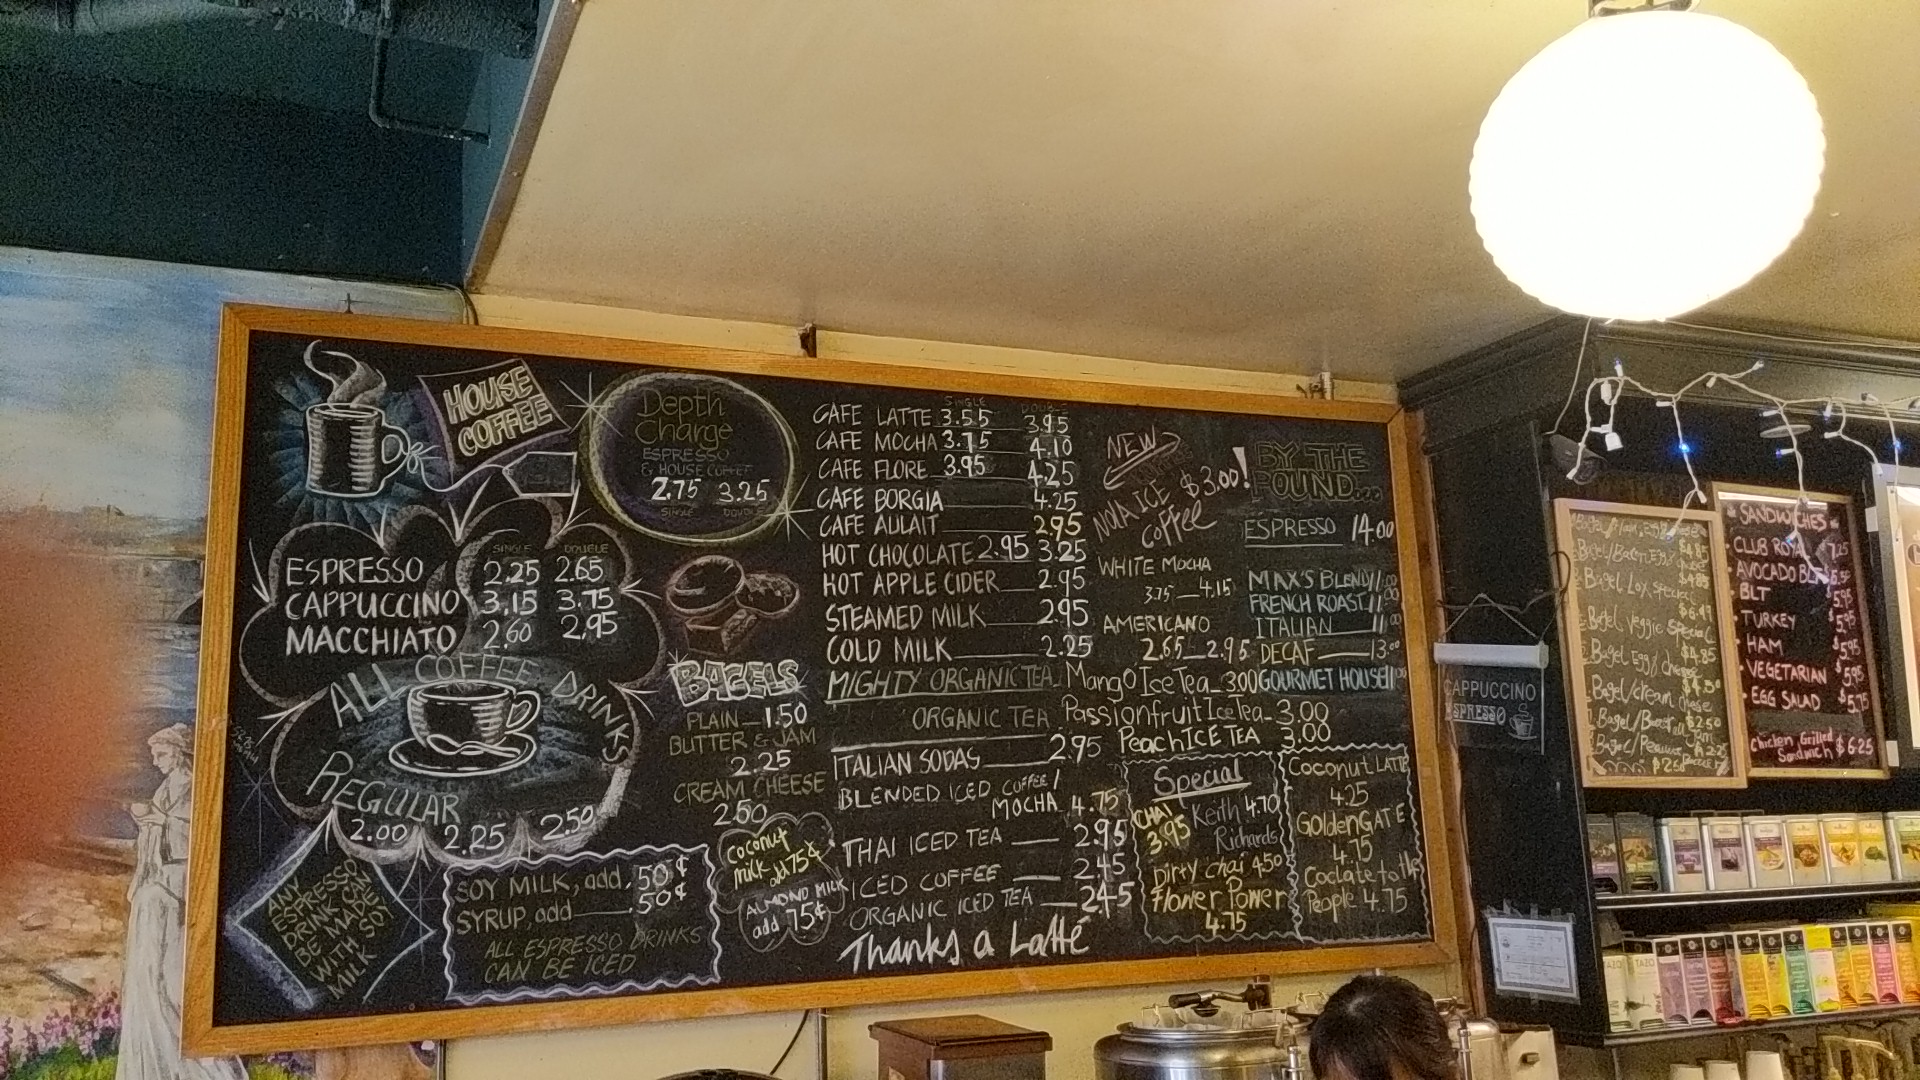 HOUSE
COFFEE
SINGLE DOUBLE
ESPRESSO 2.25 2.65
CAPPUCCINO 3.15 3.75
MACCHIATO 2.60 2.95
ALL COFFEE DRINKS
REGULAR
2.00 2.25 2.50
ANY
ESPRESSO
DRINK CAN
BE MADE
WITH SOY
MILK
SOY MILK, add 50¢
SYRUP, add 50¢
ALL ESPRESSO DRINKS
CAN BE ICED
Depth
Charge
ESPRESSO
& HOUSE COFFEE
2.75 3.25
SINGLE DOUBLE
BAGELS
PLAIN 1.50
BUTTER & JAM
2.25
CREAM CHEESE
2.50
Coconut
milk add 75¢
ALMOND MILK
add 75¢
SINGLE DOUBLE
CAFE LATTE 3.55 3.95
CAFE MOCHA 3.75 4.10
CAFE FLORE 3.95 4.25
CAFE BORGIA 4.25
CAFE AULAIT 2.95
HOT CHOCOLATE 2.95 3.25
HOT APPLE CIDER 2.95
STEAMED MILK 2.95
COLD MILK 2.25
MIGHTY ORGANIC TEA
ORGANIC TEA
ITALIAN SODAS 2.95
BLENDED ICED COFFEE/
MOCHA 4.75
THAI ICED TEA 2.95
ICED COFFEE 2.45
ORGANIC ICED TEA 2.45
Thanks a Latté
NEW
NOLA ICE $3.00!
Coffee
WHITE MOCHA
3.75 4.15
AMERICANO
2.65 2.95
Mango Ice Tea 3.00
Passionfruit Ice tea 3.00
Peach ICE TEA 3.00
BY THE
POUND...
ESPRESSO 14.00
MAX'S BLEND 11.00
FRENCH ROAST 11.00
ITALIAN 11.00
DECAF 13.00
GOURMET HOUSE 11.00
Special
CHAI
3.95
Keith 4.70
Richards
Dirty chai 4.50
Flower Power
4.75
Coconut LATTE
4.25
GoldenGATE
4.75
Coclate to the
People 4.75
CAPPUCCINO
ESPRESSO
$4.85
Bagel Lox Special
$6.47
Bagel Veggie Special
$4.85
Bagel Egg/Cheese
Bagel/cream cheese
$2.50
SANDWICHES
CLUB ROYAL 7.25
AVOCADO BLT 6.50
BLT $5.95
TURKEY $5.95
HAM $5.95
VEGETARIAN $5.95
EGG SALAD $5.75
Chicken Grilled
Sandwich $6.25
TAZO